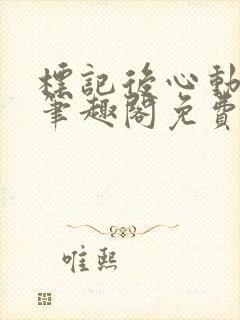 標記後心動
筆趣閣免費
唯熙